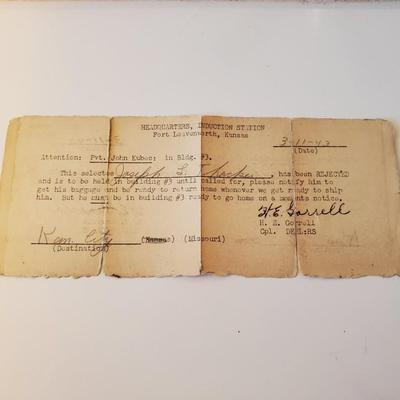 HEADQUARTERS, INDUCTION STATION
Fort Leavenworth, Kansas
3-11-42
(Date)
Attention: Pvt. John Kubec; in Bldg. #3.
This selectee Joseph L. has been REJECTED
and is to be held in building #3 until called for, please notify him to
get his baggage and be ready to return home whenever we get ready to ship
him. But he must be in building #3 ready to go home on a moments notice.
H. E. Gorrell
H. E. Gorrell
Cpl. DEML:RS
Kan. City (Kansas) (Missouri)
(Destination)